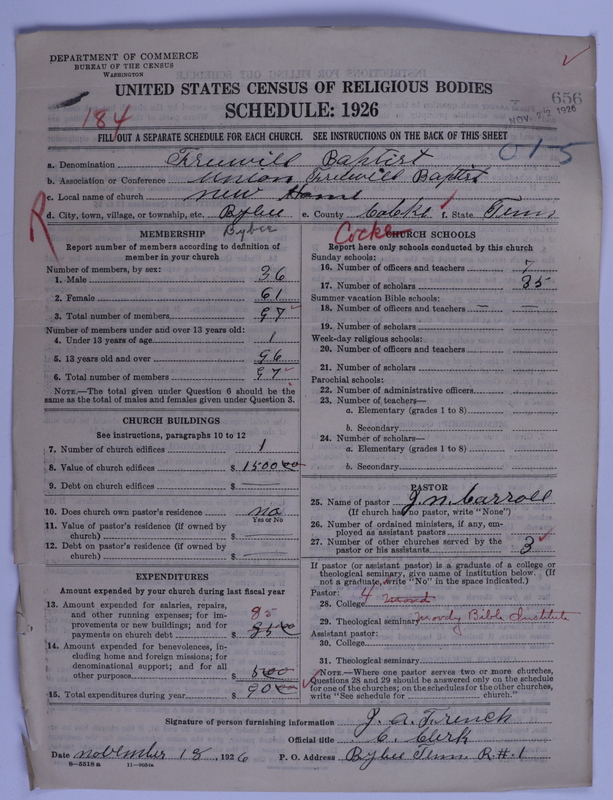 DEPARTMENT OF COMMERCE
BUREAU OF THE CENSUS
WASHINGTON
UNITED STATES CENSUS OF RELIGIOUS BODIES
SCHEDULE: 1926
184
656
NOV 22 1926
FILL OUT A SEPARATE SCHEDULE FOR EACH CHURCH. SEE INSTRUCTIONS ON THE BACK OF THIS SHEET
01-5
a. Denomination Freewill Baptist
b. Association or Conference Union Freewill Baptist
c. Local name of church New Home
d. City, town, village, or township, etc. Bybee e. County Cocke f. State Tenn
R
Bybee
Cocke
MEMBERSHIP
Report number of members according to definition of member in your church
Number of members, by sex:
1. Male 36
2. Female 61
3. Total number of members 97
Number of members under and over 13 years old:
4. Under 13 years of age 1
5. 13 years old and over 96
6. Total number of members 97
NOTE.—The total given under Question 6 should be the same as the total of males and females given under Question 3.
CHURCH BUILDINGS
See instructions, paragraphs 10 to 12
7. Number of church edifices 1
8. Value of church edifices $ 1500 00
9. Debt on church edifices $
10. Does church own pastor's residence no
Yes or No
11. Value of pastor's residence (if owned by church) $
12. Debt on pastor's residence (if owned by church) $
EXPENDITURES
Amount expended by your church during last fiscal year
13. Amount expended for salaries, repairs, and other running expenses; for improvements or new buildings; and for payments on church debt $ 85 00
85
14. Amount expended for benevolences, including home and foreign missions; for denominational support; and for all other purposes $ 5 00
15. Total expenditures during year $ 90 00
CHURCH SCHOOLS
Report here only schools conducted by this church
Sunday schools:
16. Number of officers and teachers 7
17. Number of scholars 35
Summer vacation Bible schools:
18. Number of officers and teachers
19. Number of scholars
Week-day religious schools:
20. Number of officers and teachers
21. Number of scholars
Parochial schools:
22. Number of administrative officers
23. Number of teachers—
a. Elementary (grades 1 to 8)
b. Secondary
24. Number of scholars—
a. Elementary (grades 1 to 8)
b. Secondary
PASTOR
25. Name of pastor J. N. Carroll
(If church has no pastor, write "None")
26. Number of ordained ministers, if any, employed as assistant pastors
27. Number of other churches served by the pastor or his assistants 3
If pastor (or assistant pastor) is a graduate of a college or theological seminary, give name of institution below. (If not a graduate, write "No" in the space indicated.)
Pastor:
28. College 4
29. Theological seminary Moody Bible Institute
Assistant pastor:
30. College
31. Theological seminary
NOTE.—Where one pastor serves two or more churches, Questions 28 and 29 should be answered only on the schedule for one of the churches; on the schedules for the other churches, write "See schedule for church."
Signature of person furnishing information J. A. French
Official title C. Clerk
Date November 18, 1926 P. O. Address Bybee Tenn R.#.1
8-5518a 11-9054a